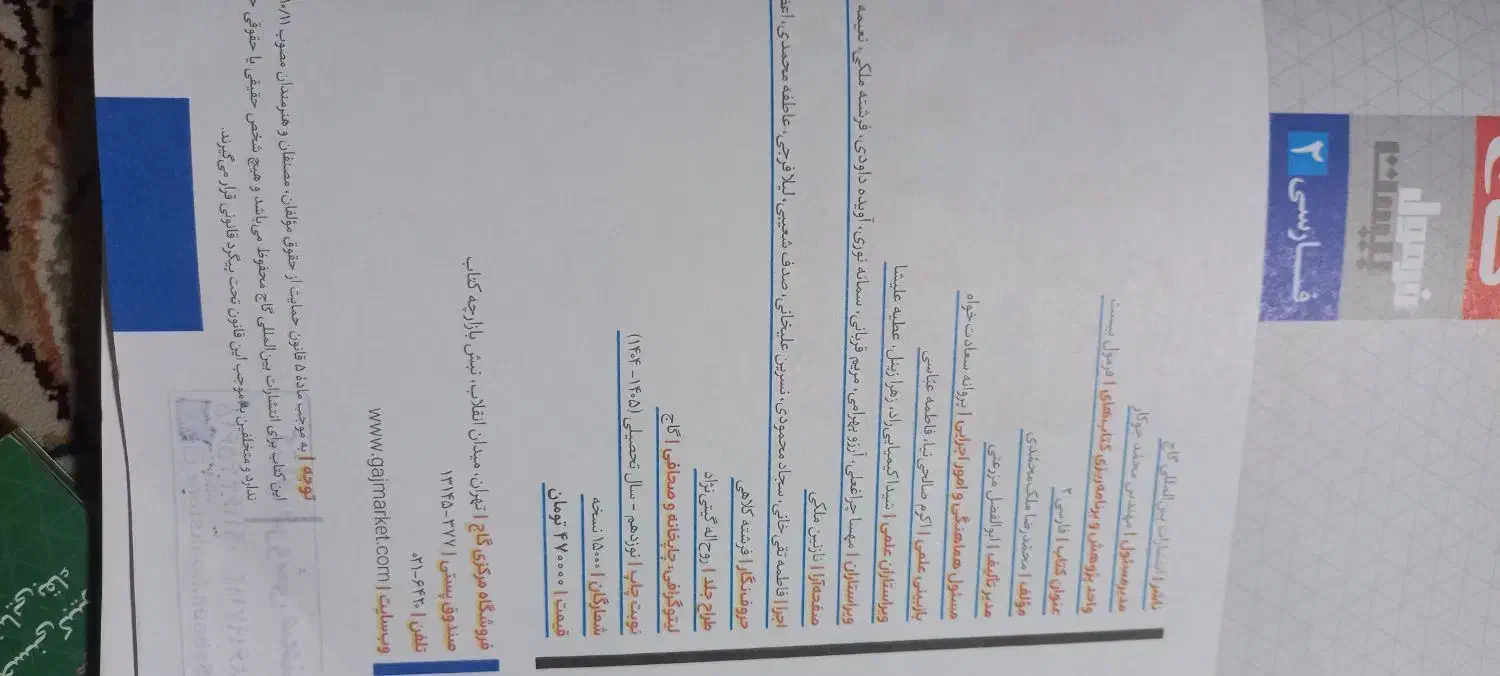 گاج
فرمول
بیست
فارسی ۲
ناشر | انتشارات بین‌المللی گاج
مدیر مسئول | مهندس محمد جوکار
واحد پژوهش و برنامه‌ریزی کتاب‌های | فرمول بیست
عنوان کتاب | فارسی ۲
مؤلف | محمدرضا ملک‌محمّدی
مدیر تألیف | ابوالفضل مزرعتی
مسئول هماهنگی و امور اجرایی | پروانه سعادت خواه
بازبینی علمی | اکرم صالحی‌نیا، فاطمه عباسی
ویراستاران علمی | شیدا کیمیایی‌راد، زهرا زینل، عطیه علیشا
ویراستاران | مهسا چراغعلی، آرزو بهرامی، مریم قربانی، سمانه نوری، آویده داودی، فرشته ملکی، نعیمه
صفحه‌آرا | نازنین ملکی
اجرا | فاطمه تقی خانی، سجاد محمودی، نسرین علیخانی، صدف شعیبی، لیلا فرجی، عاطفه محمدی،
حروف‌نگار | فرشته کلاهی
طراح جلد | روح‌اله گیتی نژاد
لیتوگرافی، چاپخانه و صحافی | گاج
نوبت چاپ | نوزدهم - سال تحصیلی (۱۴۰۵ - ۱۴۰۴)
شمارگان | ۱۵۰۰۰ نسخه
قیمت | ۴۷۰۰۰۰ تومان
فروشگاه مرکزی گاج | تهران، میدان انقلاب، نبش بازارچه کتاب
صندوق پستی | ۳۷۷-۱۳۱۴۵
تلفن | ۶۴۲۰-۰۲۱
وب‌سایت | www.gajmarket.com
توجه | به موجب مادهٔ ۵ قانون حمایت از حقوق مؤلفان، مصنفان و هنرمندان مصوب ۱۰/۱۱
این کتاب برای انتشارات بین‌المللی گاج محفوظ می‌باشد و هیچ شخص حقیقی یا حقوقی
ندارد و متخلفین به موجب این قانون تحت پیگرد قانونی قرار می‌گیرند.